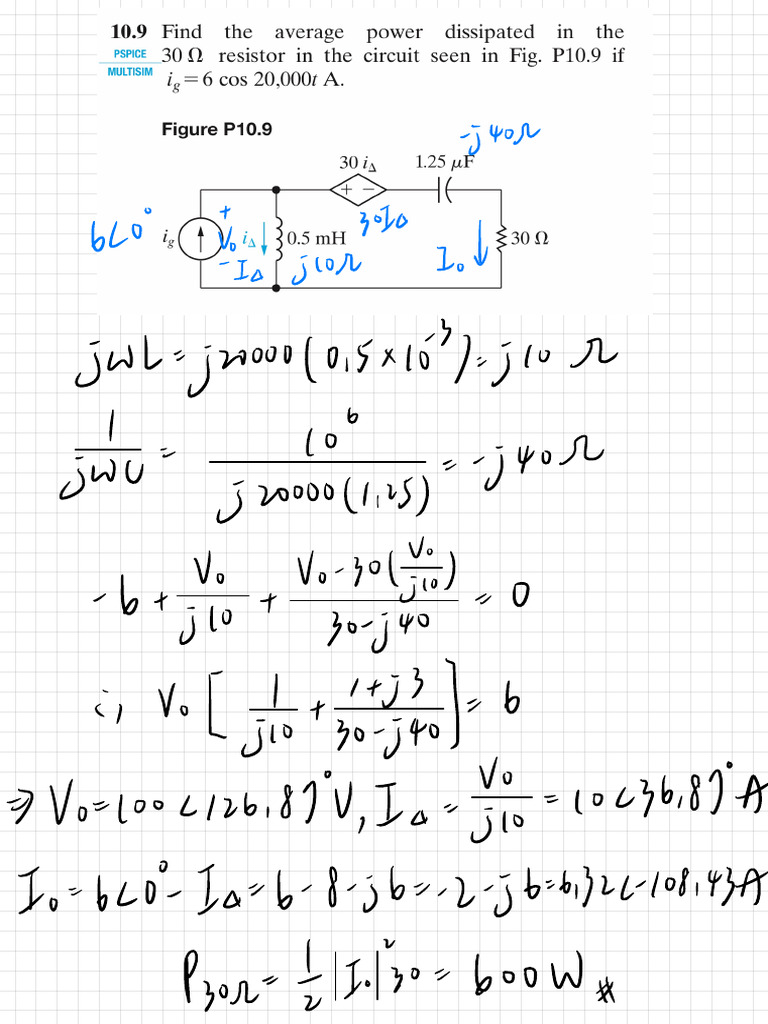 10.9 Find the average power dissipated in the
PSPICE 30 Ω resistor in the circuit seen in Fig. P10.9 if
MULTISIM i_g = 6 cos 20,000t A.
Figure P10.9
-j40Ω
30 i_Δ 1.25 μF
+ −
30I_Δ
6∠0° i_g + V_o − i_Δ 0.5 mH I_o 30 Ω
I_Δ j10Ω
jωL = j20000(0.5×10^-3) = j10 Ω
1/jωC = 10^6/j20000(1.25) = -j40Ω
-6 + V_o/j10 + (V_o - 30(V_o/j10))/(30-j40) = 0
∴ V_o [1/j10 + (1+j3)/(30-j40)] = 6
⇒ V_o = 100∠126.87° V, I_Δ = V_o/j10 = 10∠36.87° A
I_o = 6∠0° - I_Δ = 6-8-j6 = -2-j6 = 6.32∠-108.43 A
P_30Ω = 1/2 |I_o|^2 30 = 600W #